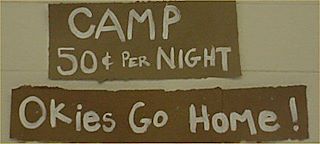 CAMP
50¢ PER NIGHT
Okies Go Home!